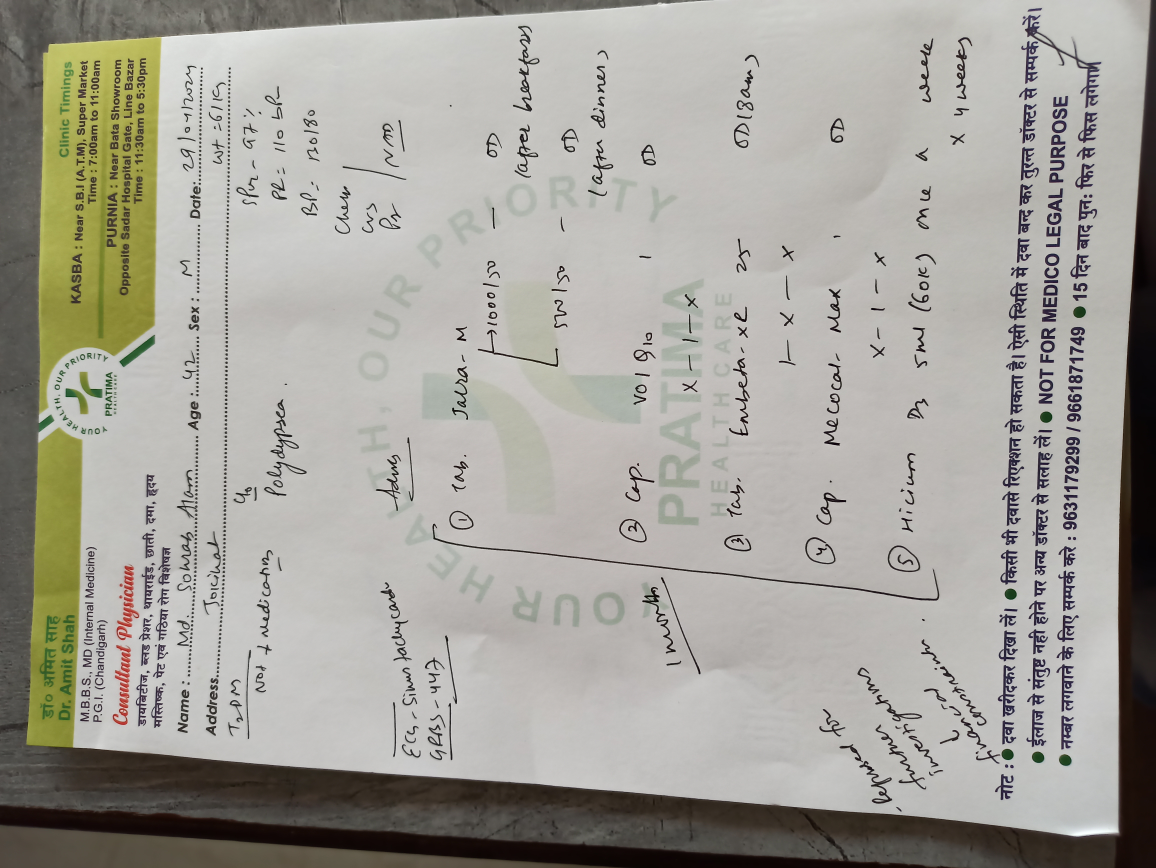 डॉ० अमित साह
Dr. Amit Shah
M.B.B.S., MD (Internal Medicine)
P.G.I. (Chandigarh)
Consultant Physician
डायबिटीज, ब्लड प्रेशर, थायराईड, छाती, दमा, हृदय
मस्तिष्क, पेट एवं गठिया रोग विशेषज्ञ
YOUR HEALTH, OUR PRIORITY
PRATIMA
HEALTHCARE
Clinic Timings
KASBA : Near S.B.I (A.T.M), Super Market
Time : 7:00am to 11:00am
PURNIA : Near Bata Showroom
Opposite Sadar Hospital Gate, Line Bazar
Time : 11:30am to 5:30pm
Name : Md. Sohrab Alam Age : 42 Sex : M Date: 29/07/2024
Address Jokihat Wt = 61kg
T2DM
Not + medications
c/o
Polydypsea.
SPo2 - 97%
PR = 110 bpm
BP = 120/80
Chest
CVS
NAD
ECG - Sinus tachycardia
GRBS - 447
Advis
① Tab. Jalra - M
1000/50 — OD
(after breakfast)
500/50 - OD
(after dinner)
② Cap. VOlglo 1 OD
x - 1 - x
③ Tab. Embeta - XR 25 OD (8am)
1 - x - x
④ Cap. Mecocal - Max 1 OD
x - 1 - x
⑤ Hicium D3 5ml (60K) once a week
x 4 weeks
1 month
refused for
further
investigations
financial
constraint.
YOUR HEALTH, OUR PRIORITY
PRATIMA
HEALTHCARE
नोट : ● दवा खरीदकर दिखा लें। ● किसी भी दवासे रिएक्शन हो सकता है। ऐसी स्थिति में दवा बन्द कर तुरन्त डॉक्टर से सम्पर्क करें।
● ईलाज से संतुष्ट नही होने पर अन्य डॉक्टर से सलाह लें। ● NOT FOR MEDICO LEGAL PURPOSE
● नम्बर लगवाने के लिए सम्पर्क करे : 9631179299 / 9661871749 ● 15 दिन बाद पुन: फिर से फिस लगेगा